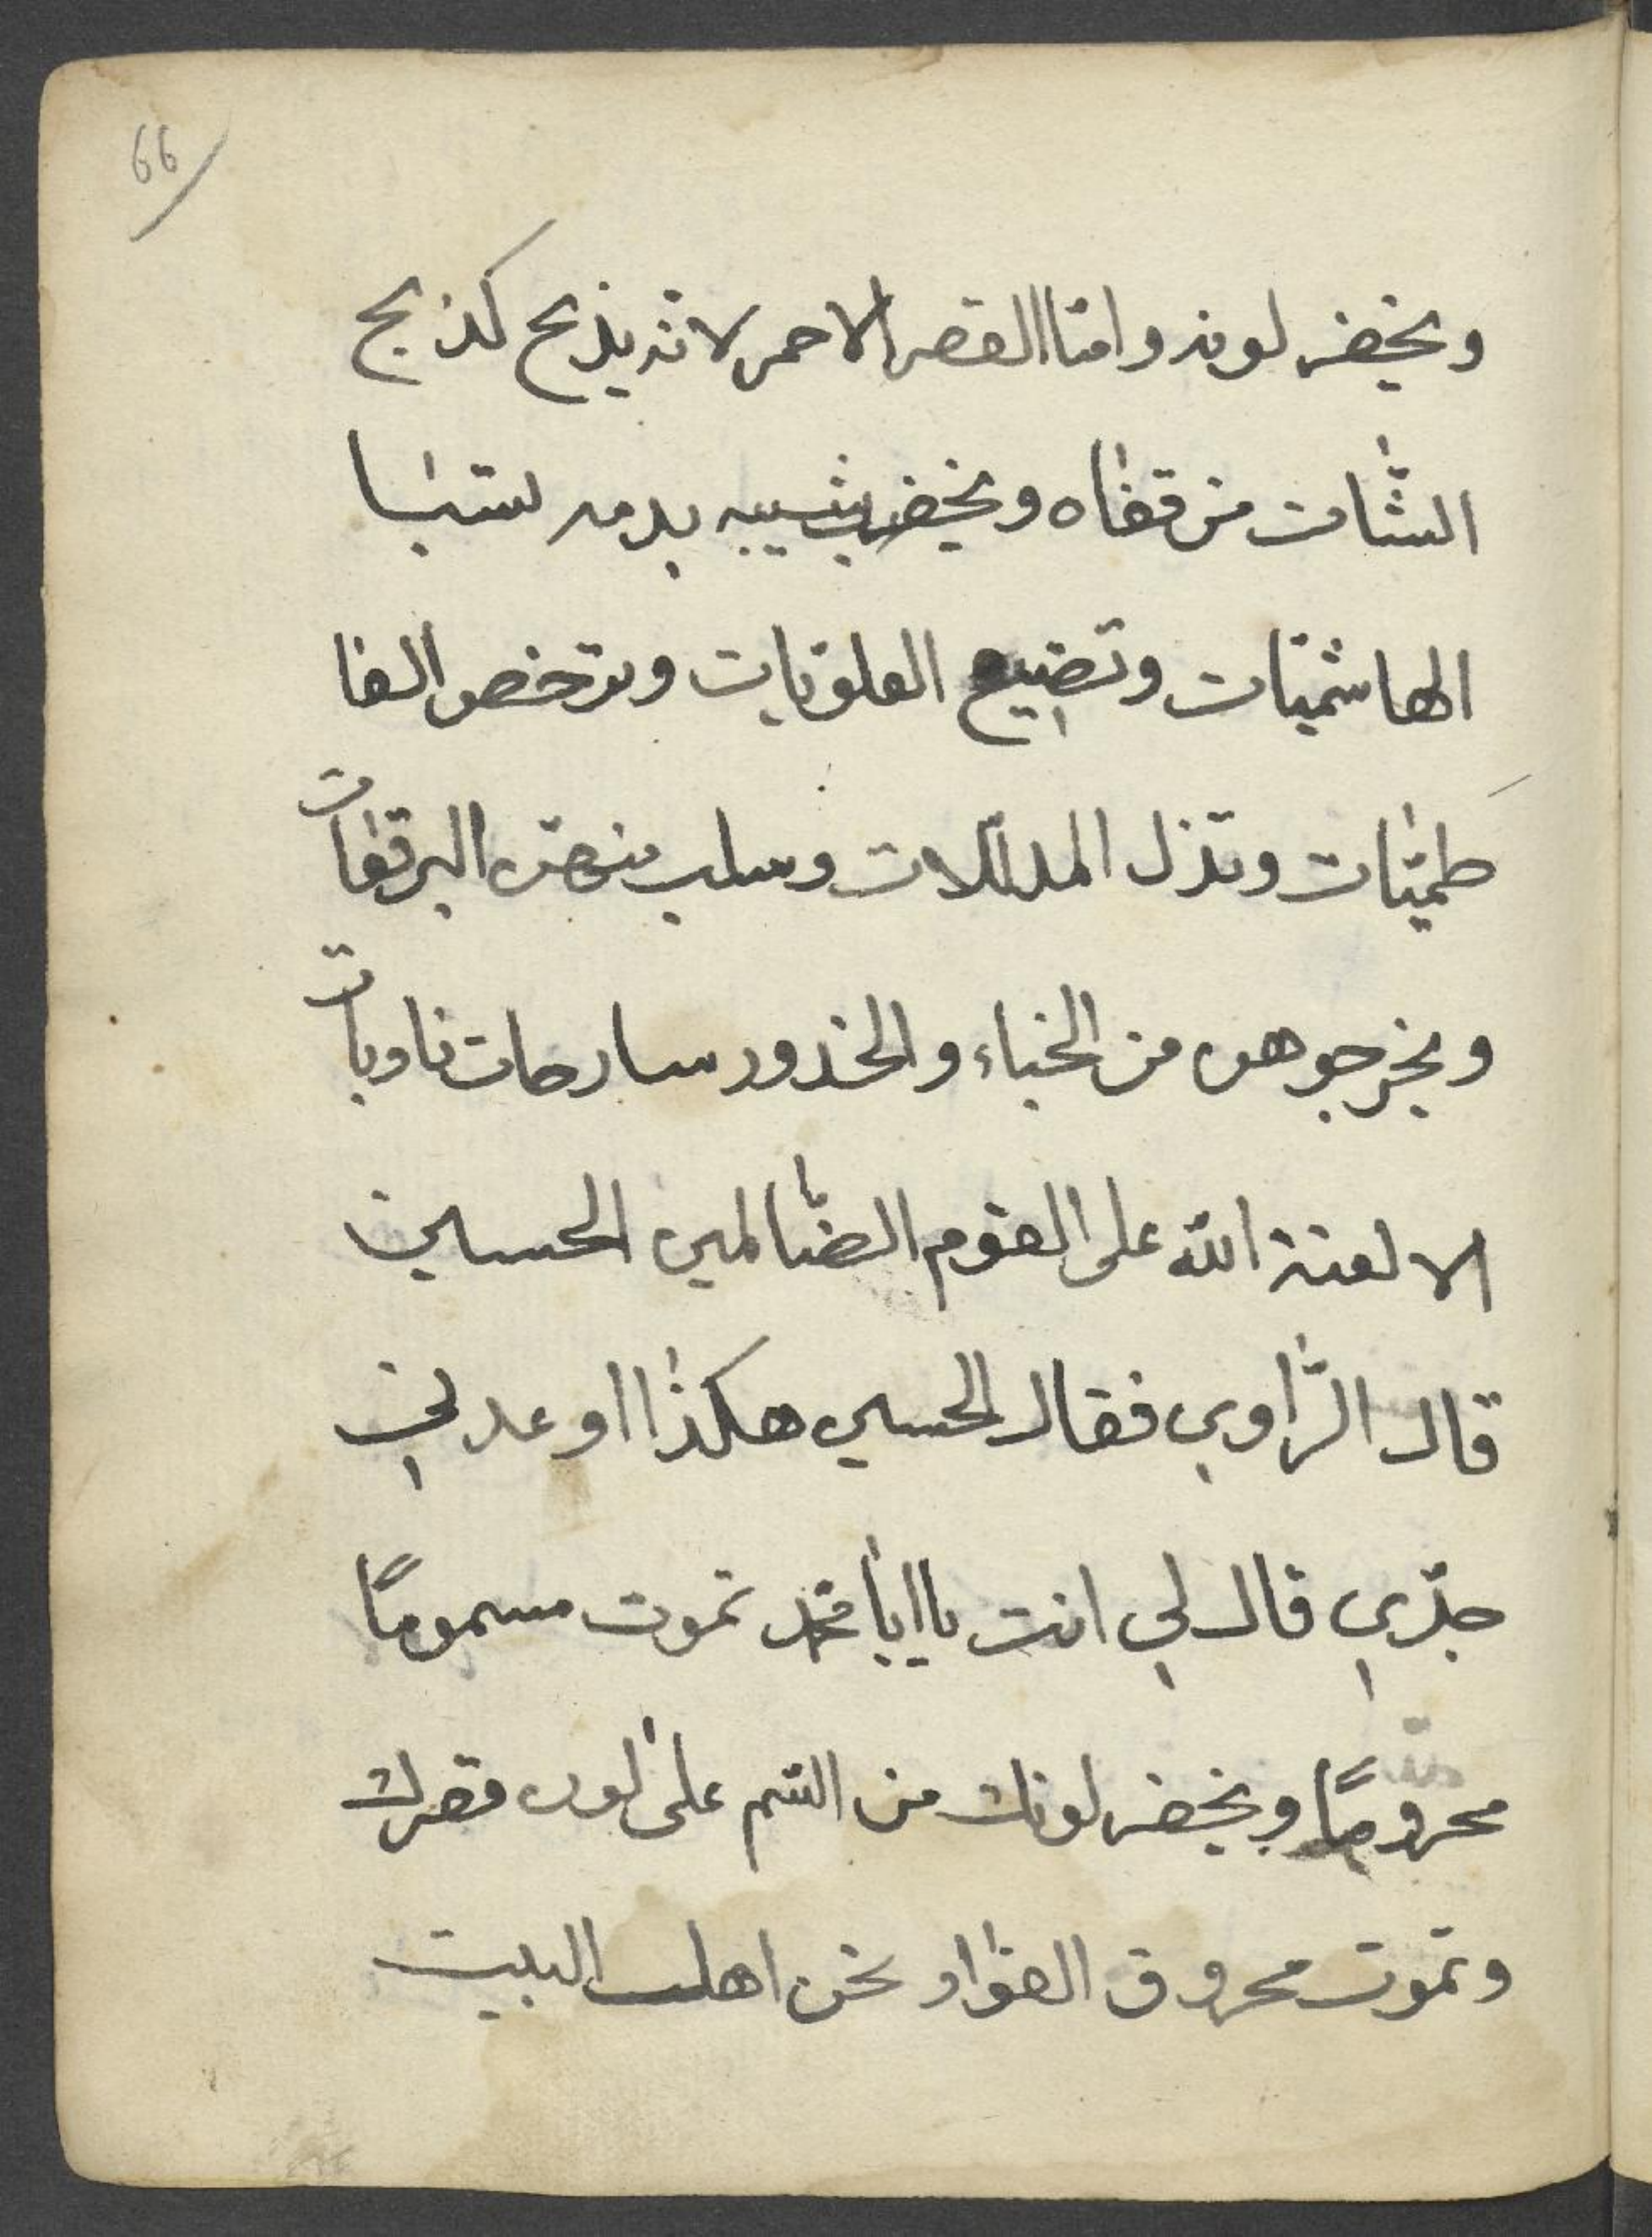 66
ويخضر لونه وامّا القصر الاحمر لانّه يذبح كذبح
الشّات من قفاه ويخضب شيبه بدمه لستبا
الهاشميّات وتضييع العلوّيات وترخص الفا
طميّات وتذل المدلّلات وسلب منهنّ البرقعات
ويخرجوهن من الخباء والخذور سارحات ناوبات
الا لعنة الله على القوم الضّالمين الحسين
قال الرّاوي فقال الحسين هكذا اوعدني
جدّي قال لي انت يا ابا محمّد تموت مسمومًا
محرومًا ويخضر لونك من السّم على لون قصرك
وتموت محروق الفؤاد ونحن اهل البيت